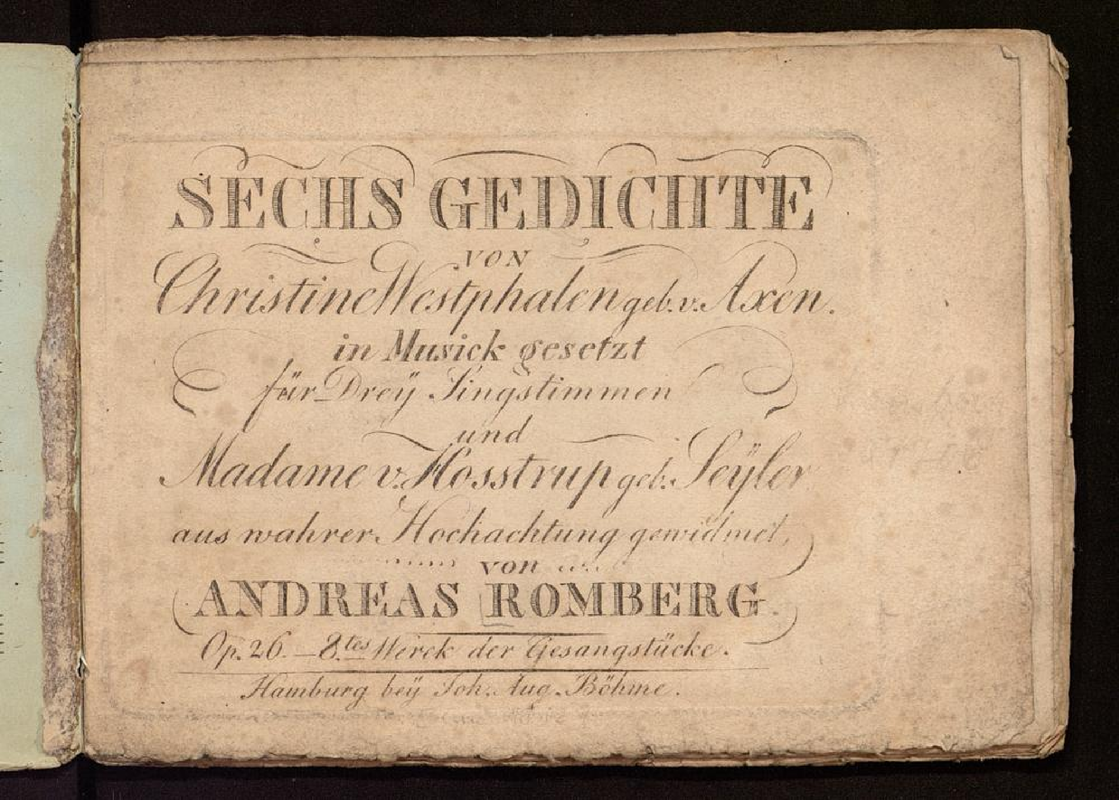 SECHS GEDICHTE
VON
Christine Westphalen geb. v. Axen.
in Musick gesetzt
für Dreÿ Singstimmen
und
Madame v. Hosstrup geb. Seÿler
aus wahrer Hochachtung gewidmet,
von
ANDREAS ROMBERG.
Op. 26. – 8.tes Werck der Gesangstücke.
Hamburg beÿ Joh. Aug. Böhme.